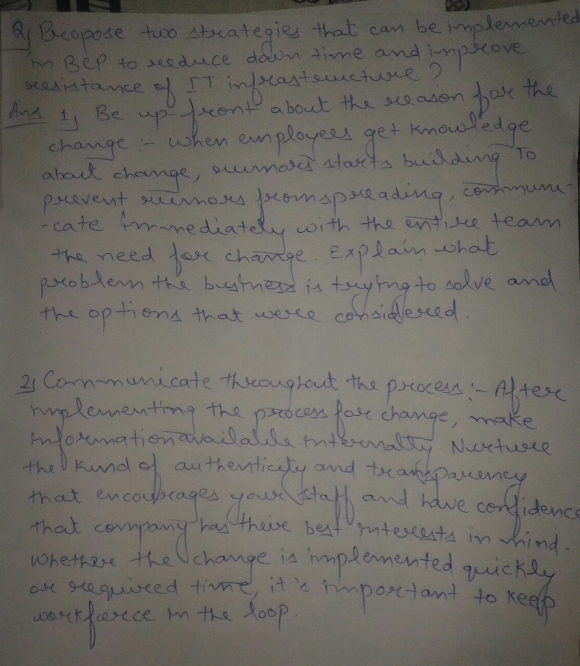 Q) Propose two strategies that can be implemented
in BCP to reduce down time and improve
resistance of IT infrastructure?
Ans 1) Be up-front about the reason for the
change :- when employees get knowledge
about change, rumors starts building To
prevent rumors from spreading, communi-
-cate immediately with the entire team
the need for change. Explain what
problem the business is trying to solve and
the options that were considered.
2) Communicate throughout the process :- After
implementing the process for change, make
information available internally Nurture
the kind of authenticity and transparency
that encourages your staff and have confidence
that company has their best interests in mind.
Whether the change is implemented quickly
or required time, it's important to keep
workforce in the loop.